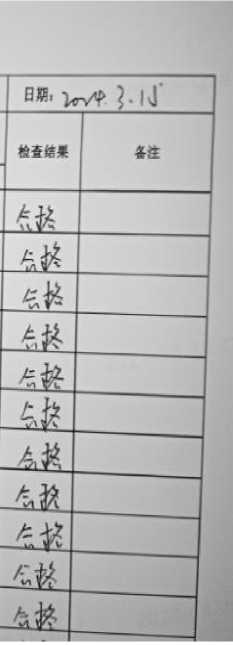 日期: 2024.3.15
检查结果 备注
合格
合格
合格
合格
合格
合格
合格
合格
合格
合格
合格